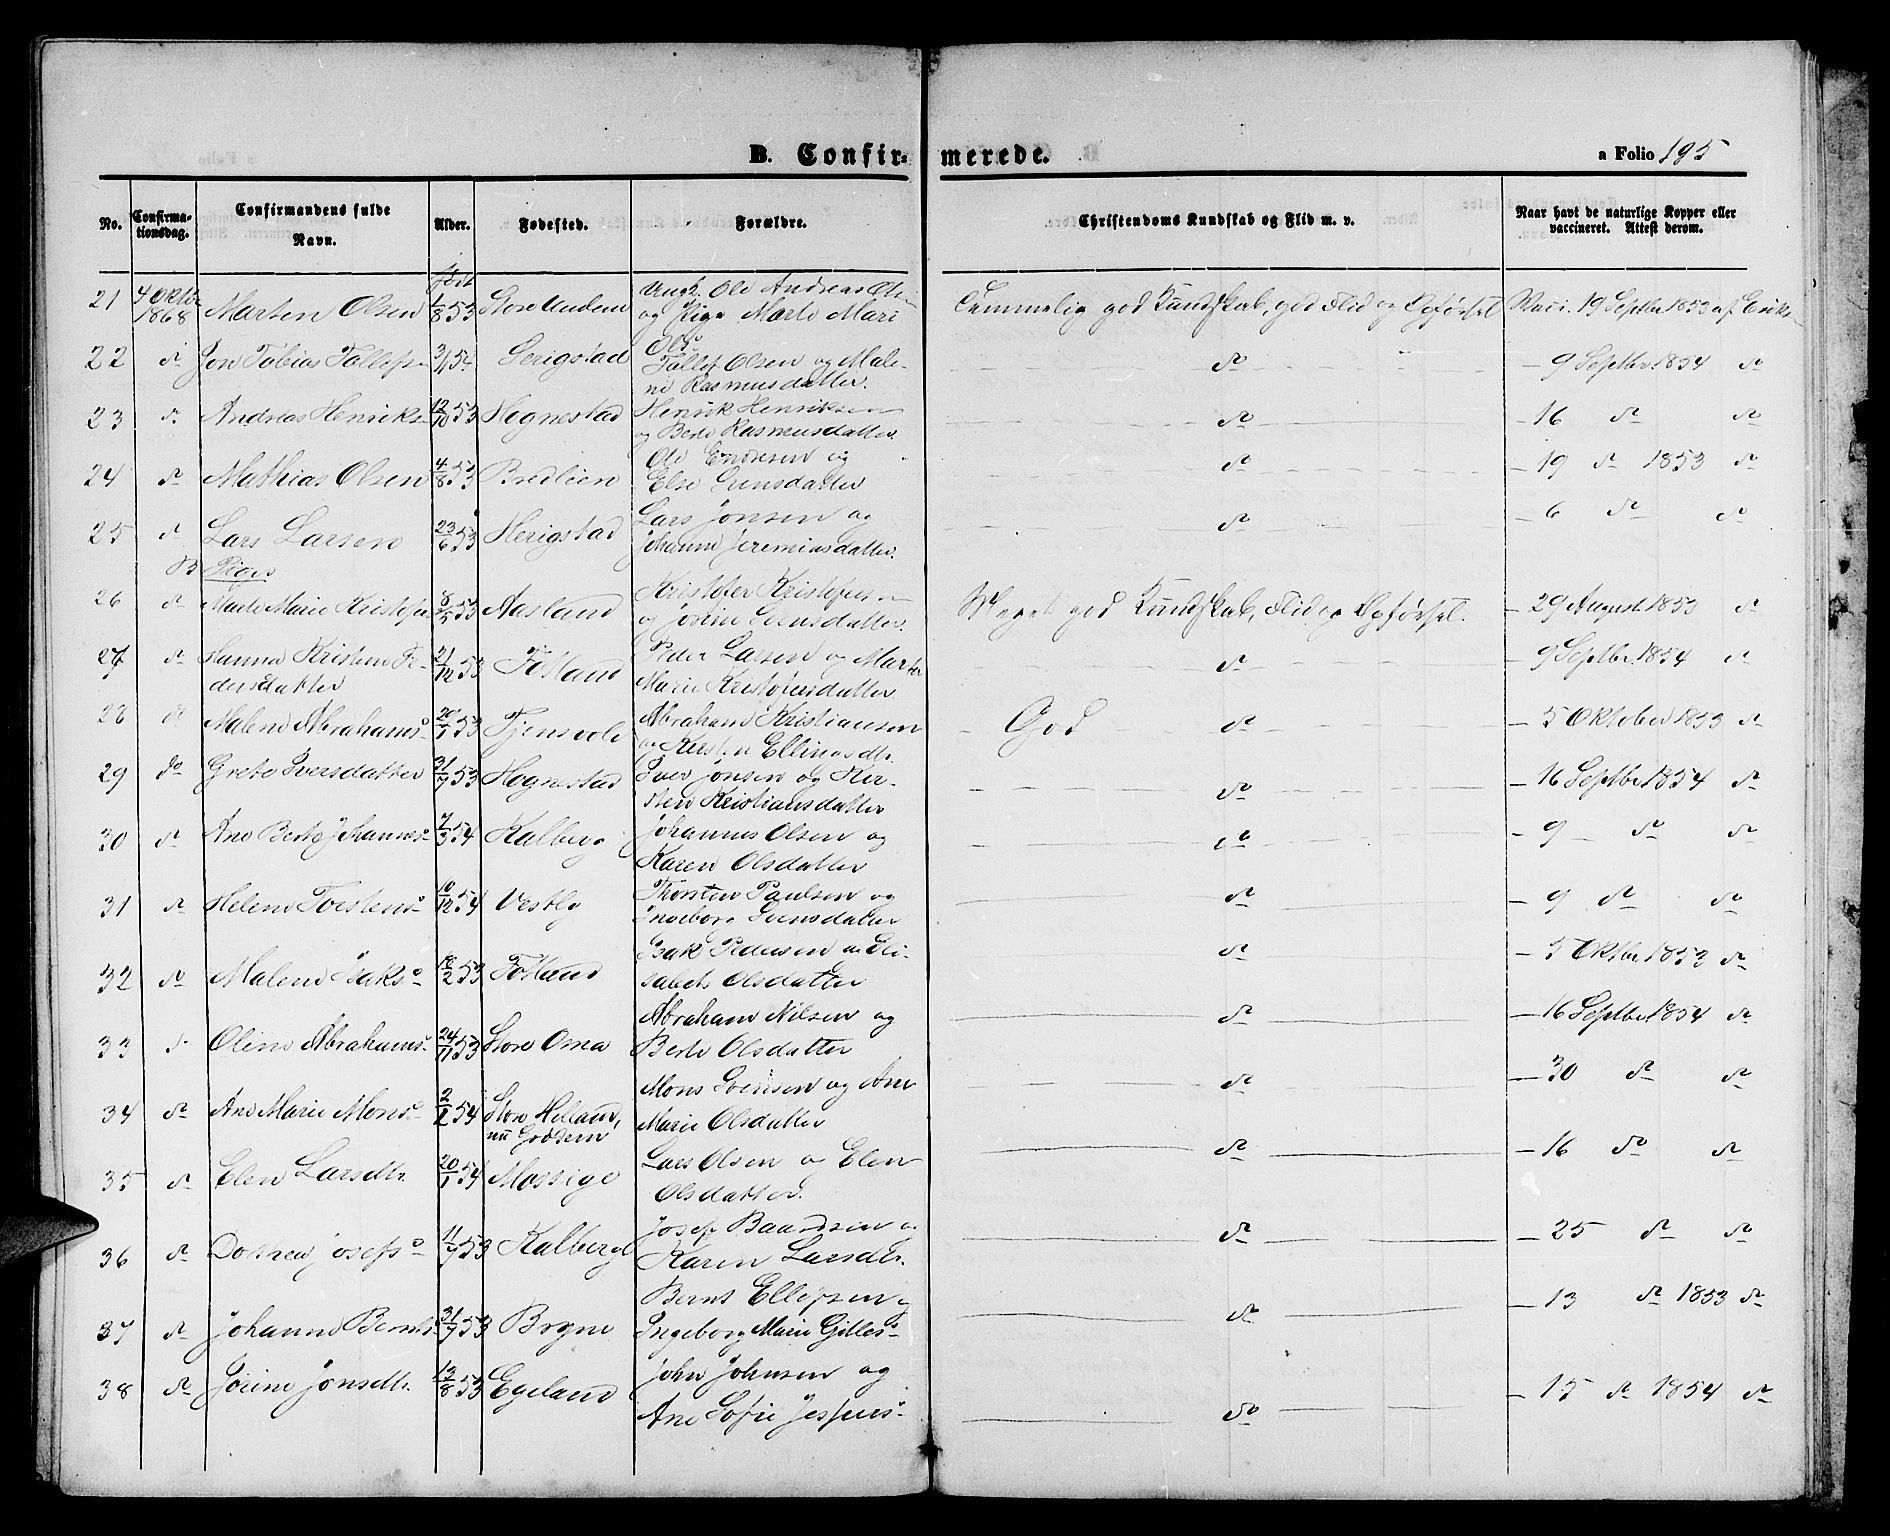 B. Confirmerede.
a Folio 195
No. Confirmationsdag. Confirmandens fulde Navn. Alder. Fødested. Forældre. Christendoms Kundskab og Flid m. v. Naar havt de naturlige Kopper eller vaccineret. Attest derom.
født
21 4 Oktbr 1868 Marten Olsen 1/8 53 Store Undem Ungk. Ole Andreas Ols- og Pige Marte Mari Olsd Temmelig god Kundskab, god Flid og Opførsel Vacc. 19 Septbr 1853 af Eriks-
22 do Jon Tobias Tollefs- 3/1 54 Serigstad Tollef Olsen og Malene Rasmusdatter. do - 9 Septbr 1854 do
23 do Andreas Henriks- 12/10 53 Hognestad Henrik Henriksen og Berte Rasmusdatter. do - 16 do do
24 do Mathias Olsen 4/8 53 Bredlien Ole Endresen og Else Svensdatter do - 19 do 1853 do
25 do Lars Larsen 23/6 53 Herigstad Lars Jonsen og Johanne Jeremiasdatter. do - 6 do do
B Piger
26 do Marte Marie Kristofers 8/5 53 Aasland Kristofer Kristofersen og Jorine Svensdatter. Meget god Kundskab, Flid og Opførsel. - 29 August 1853 do
27 do Hanna Kristine Pedersdatter 21/12 53 Fotland Peder Larsen og Marte Marie Kristofersdatter do - 9 Septbr. 1854 do
28 do Malene Abrahams- 20/7 53 Tjensvold Abraham Kristiansen og Kersten Elliasdtr. God do - 5 Oktober 1853 do
29 do Grete Iversdatter 31/7 53 Hognestad Iver Jonsen og Kersten Kristiansdatter do - 16 Septbr 1854 do
30 do Ane Berte Johannes- 7/3 54 Kalberg Johannes Olsen og Karen Olsdatter do - 9 do do
31 do Helene Torstens- 10/12 54 Vestly Thorsten Paulsen og Ingeborg Svensdatter do - 9 do do
32 do Malene Isaks- 18/2 53 Fotland Isak Pedersen og Elisabet Olsdatter do - 5 Oktbr 1853 do
33 do Oline Abrahams- 24/11 53 Store Oma Abraham Nilsen og Berte Olsdatter do - 16 Septbr 1854 do
34 do Ane Marie Mons- 2/2 54 Store Helland, nu Grødem Mons Svensen og Ane Marie Olsdatter do - 30 do do
35 do Elen Larsdtr. 20/1 54 Mossige Lars Olsen og Elen Olsdatter. do - 16 do do
36 do Dorthea Josefs- 11/7 53 Kalberg Josef Baardsen og Karen Larsdtr. do - 25 do do
37 do Johanne Bernts- 31/7 53 Bryne Bernt Ellefsen og Ingeborg Marie Gilles- do - 13 do 1853 do
38 do Jorine Jonsdtr. 13/8 53 Egeland John Johnsen og Ane Sofie Jespers- do - 15 do 1854 do